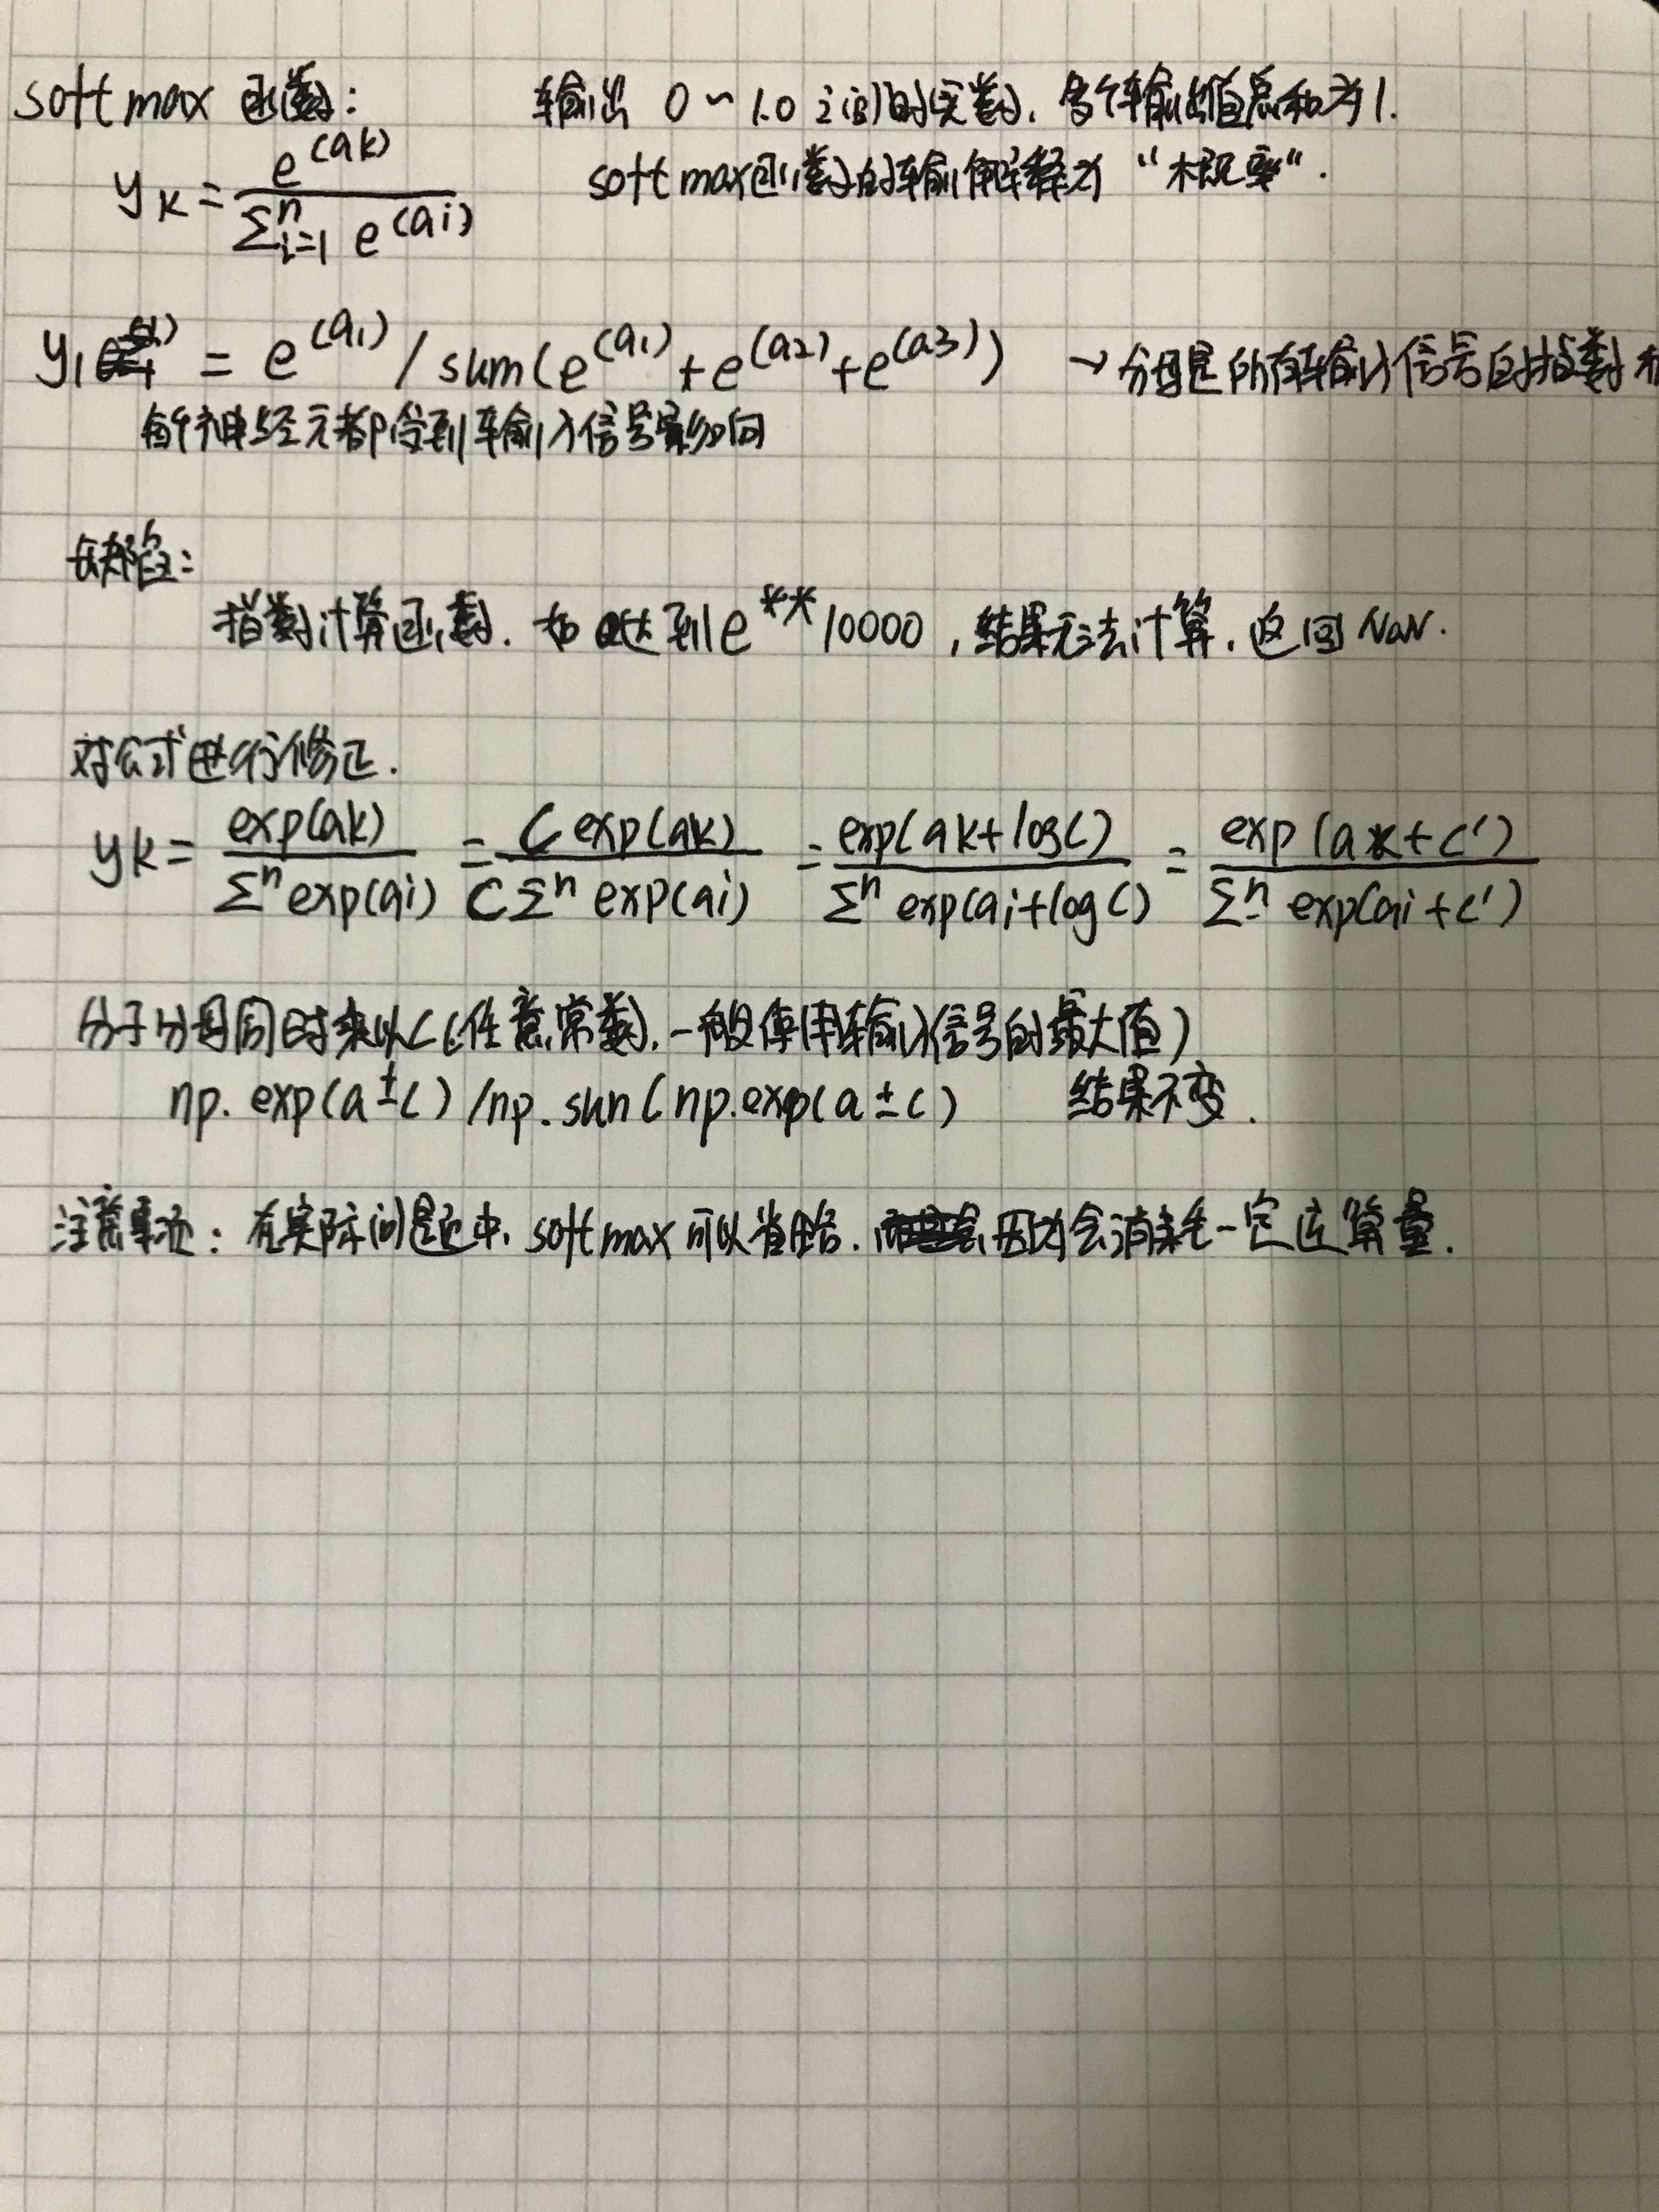 softmax 函数: 输出 0~1.0之间的实数. 多个输出值总和为1.
yk = e^(ak) / Σ^n_i=1 e^(ai) softmax函数的输出解释为“概率”.
y1 = e^(a1) / sum(e^(a1)+e^(a2)+e^(a3)) → 分母是所有输入信号的指数和
每个神经元都受到输入信号影响
缺陷:
指数计算函数. 如 达到e**10000, 结果无法计算. 返回NaN.
对公式进行修正.
yk = exp(ak) / Σ^n exp(ai) = C exp(ak) / C Σ^n exp(ai) = exp(ak+logC) / Σ^n exp(ai+logC) = exp(ak+C') / Σ^n exp(ai+C')
分子分母同时乘以C(任意常数. 一般使用输入信号的最大值)
np.exp(a±c)/np.sum(np.exp(a±c) 结果不变.
注意事项: 在实际问题中, softmax可以省略. 因为会消耗一定运算量.